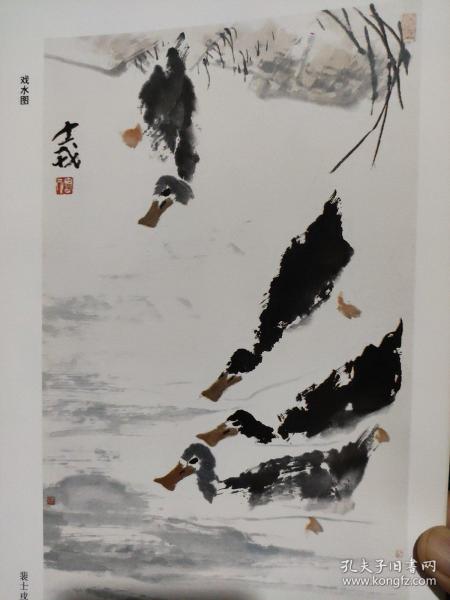 戏水图
士戎
裴士戎
孔夫子旧书网
www.kongfz.com